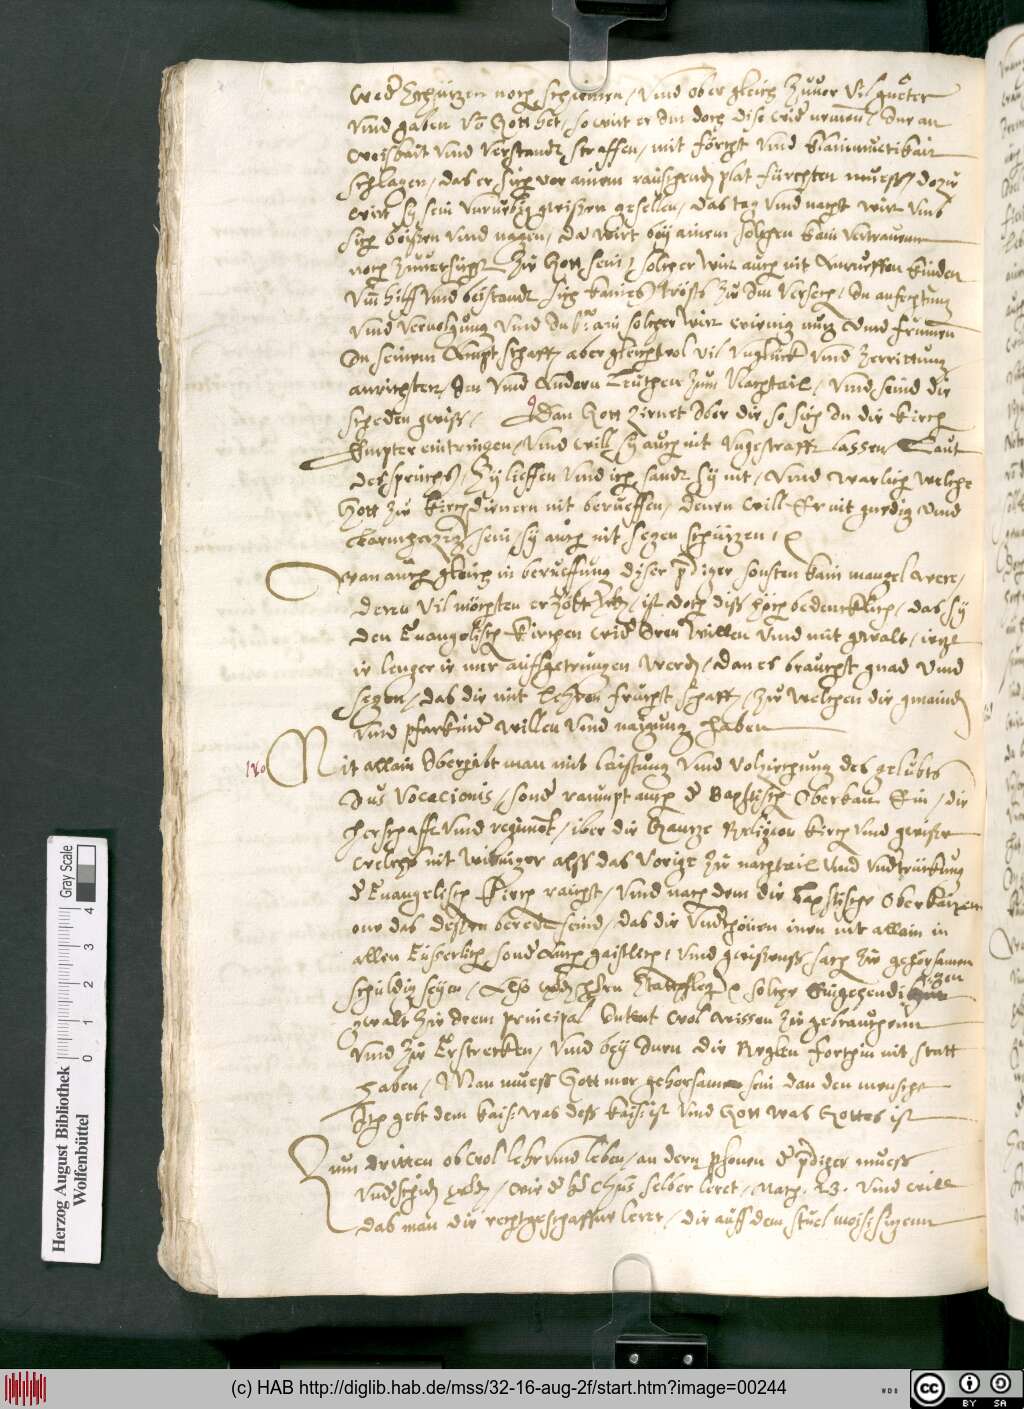 wed schützen noch schiemen / Vnd ob er gleich Zuuor Vil gueter
vnd gaben vō Gott het, so wirt er Im doch dise wid nemen, Ine an
weishait vnd verstandt straffen, mit forcht vnd klainmuetikait
schlagen, das er sich vor ainem rauschendn plat fürchten muess, dozu
wirt sy sein vnruebig gwissen gesellen, das tag vnd nacht wirt vnd
sich beissen vnd nagen, da wirt bey ainem solchen kain vertrauenn
noch Zuuersicht Zu Gott sein, solcher wirt auch nit Anrueffen kinden
Vm hilff vnd beistandt sich kaines trosts Zu Im versech, In anfechtung
vnd veruolgung vnd In solcher wirt wienig nuz Vnd frumen
In seinem Ampt schaffn aber gleichwol vil vnglückh vnd Zerrittung
anrichten, Im vnd Andern Leuthen Zum Nachtail, vnd seind die
scheden gwiss, Dan Gott Zirnet Vber die so sich In die kirch
Empter eintringen, vnd will sy auch nit vngestrafft lassen, Laut
des spruchs, Sy lieffen vnd ich sandt sy nit, vnd warlich welche
Gott Zu kirchdienern nit berueffen, denen will Er nit gnedig vnd
barmherzig sein sy auch nit segen schützen,
wan auch gleich in berueffung diser prediger sonsten kain mangel were,
deren vil möchten erzöltt, ist doch diss hoch bedencklich, das sy
den Euangelisch kirchen wid Iren willen vnd mit gwalt, iezt
ie lenger ie mer auffgetrungen werdn, dan es braucht gnad vnd
segen, das die mit lehren frucht schaffn, Zu welchen die gmaind
vnd pfarkind willen vnd naigung haben
140 Nit allain Vbergibt man mit laistung vnd volziechung des gelübts
Ius vocacionis, sond raumpt auch d Bapstisch Oberkait Ein, die
herschafft vnd regiment, iber die Ganze Religion kirch vnd gwissen
welches nit weniger alss das vorige Zu nachtail vnd vndtrückung
d Euangelisch kirch raicht, vnd nach dem die Bapstische Oberkaiten
one das dessen beredt seind, das die vndthonen inen nit allain in
allen Eusserlich sond Auch gaistlich, vnd gwissenss sach Zu gehorsamen
schuldig seyen, Also wurdn hern Stattpfleger solche Eingehendigten
gwalt Zu Irem principal Intent wol wissen Zu gebrauchenn
vnd Zu Erstrecken, vnd bey Inen die Reglen forthin nit statt
haben, Man muess Gott mer gehorsamen sein dan den menschen
Itep gebt dem kais: was dess kais: ist vnd Gott was Gottes ist
Zum dritten obwol lehr vnd leben, an dern personen d prediger muess
vndschidn werdn, wie d her Christus selber leret, Math. 23. vnd will
das man die rechtgeschaffne lerer, die auff dem stuel moisi sizenn
Herzog August Bibliothek
Wolfenbüttel
0 1 2 3 4
Gray Scale
(c) HAB http://diglib.hab.de/mss/32-16-aug-2f/start.htm?image=00244
WDB
CC BY SA